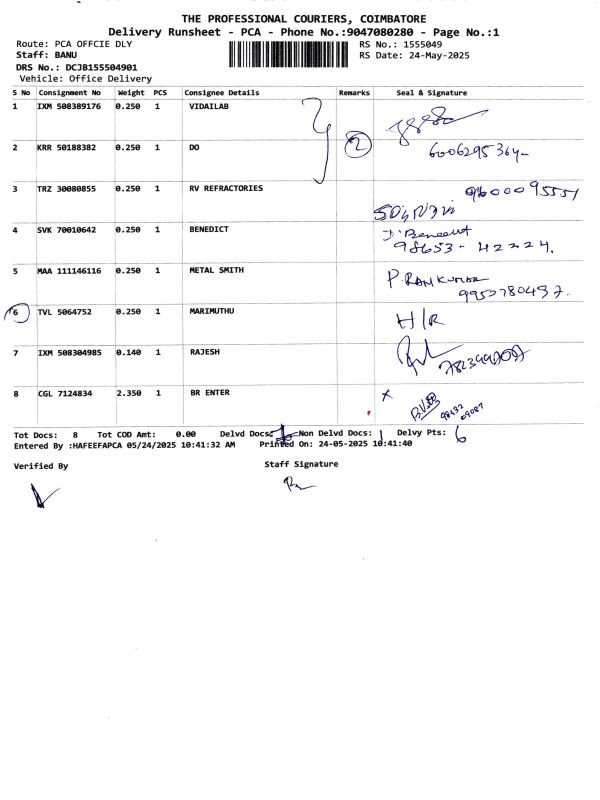 THE PROFESSIONAL COURIERS, COIMBATORE
Delivery Runsheet - PCA - Phone No.:9047080280 - Page No.:1
Route: PCA OFFCIE DLY
RS No.: 1555049
Staff: BANU
RS Date: 24-May-2025
DRS No.: DCJB155504901
Vehicle: Office Delivery
S No Consignment No Weight PCS Consignee Details Remarks Seal & Signature
1 IXM 508389176 0.250 1 VIDAILAB
2 KRR 50188382 0.250 1 DO 2 6006295364
3 TRZ 30080855 0.250 1 RV REFRACTORIES 9600095551
4 SVK 70010642 0.250 1 BENEDICT D. Benedict
98653-42224.
5 MAA 111146116 0.250 1 METAL SMITH P. RAMKUMAR
6 TVL 5064752 0.250 1 MARIMUTHU H/R
7 IXM 508304985 0.140 1 RAJESH
8 CGL 7124834 2.350 1 BR ENTER X
Tot Docs: 8 Tot COD Amt: 0.00 Delvd Docs: 7 Non Delvd Docs: 1 Delvy Pts: 6
Entered By :HAFEEFAPCA 05/24/2025 10:41:32 AM Printed On: 24-05-2025 10:41:40
Verified By
Staff Signature